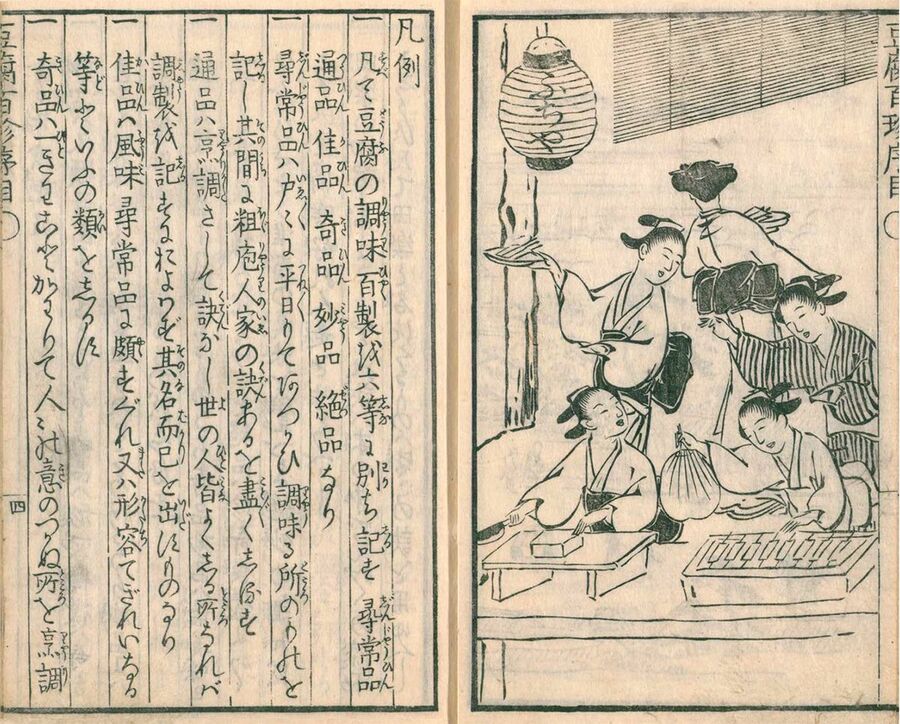 豆腐百珍序目
ふぢや
凡例
一 凡そ豆腐の調味百製を六等に別ち記す 尋常品
通品 佳品 奇品 妙品 絶品なり
一 尋常品ハ戸々に平日もてあつかひ調味る所のものを
記し其間に粗庖人家の訣あるを盡くしるす
一 通品ハ烹調さして訣なし世の人皆よくしる所なれバ
調製を記すにおよハず其名而已を出すものなり
一 佳品ハ風味尋常品に頗すぐれ又ハ形容てぎれいなる
等といふの類をしるす
一 奇品ハ一きハことかハりて人々の意のつかぬ所を烹調
豆腐百珍序目
四